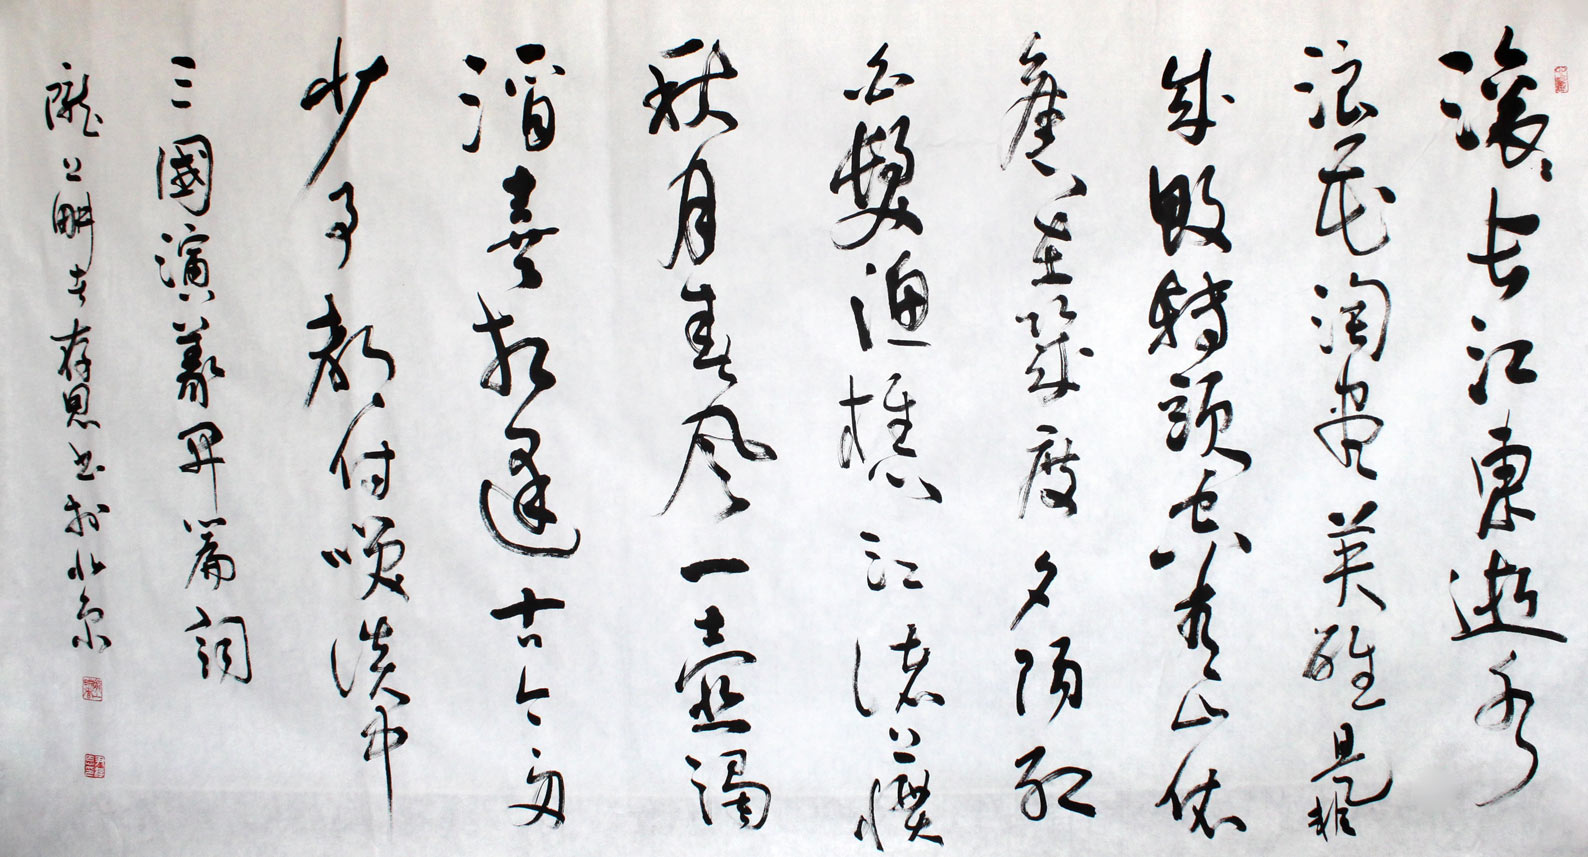 滚滚长江東逝水
浪花淘盡英雄是非
成敗轉頭空青山依
舊在幾度夕陽紅
白髮漁樵江渚上慣
秋月春風一壺濁
酒喜相逢古今多
少事都付笑談中
三國演義开篇詞
隴上畊者存恩书於北京